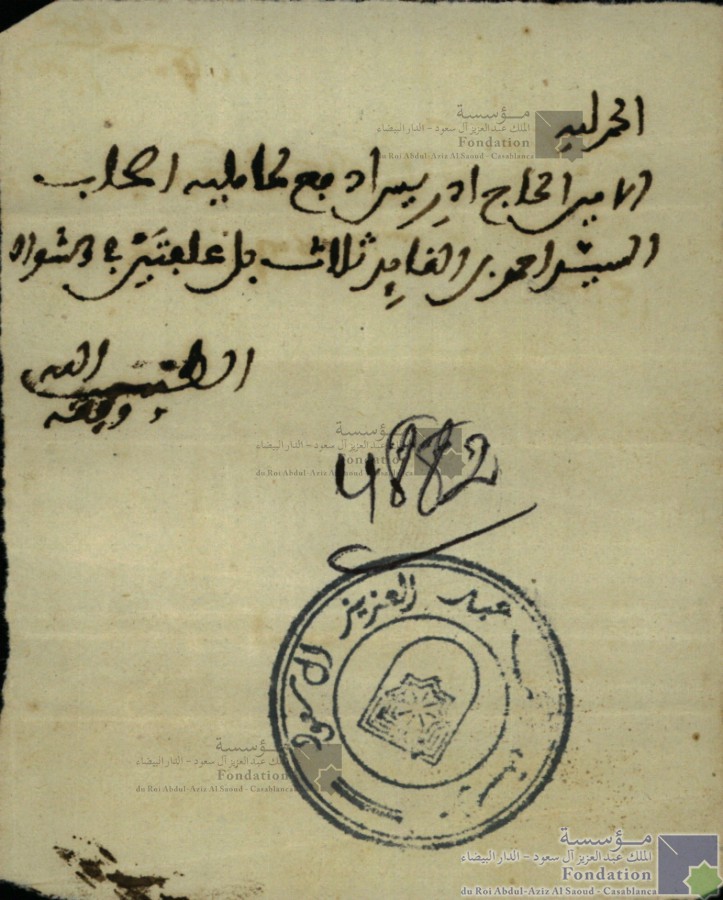 الحمد لله
الامين الحاج ادريس اد مع لحامليه الطالب
السيد احمد بن القايد ثلاث بل علفتين في
الطيب الله
وفقه
4882
عبد العزيز ال سعود
مؤسسة
الملك عبدالعزيز آل سعود - الدار البيضاء
Fondation
du Roi Abdul-Aziz Al Saoud - Casablanca
مؤسسة
الملك عبدالعزيز آل سعود - الدار البيضاء
Fondation
du Roi Abdul-Aziz Al Saoud - Casablanca
مؤسسة
الملك عبدالعزيز آل سعود - الدار البيضاء
Fondation
du Roi Abdul-Aziz Al Saoud - Casablanca
مؤسسة
الملك عبدالعزيز آل سعود - الدار البيضاء
Fondation
du Roi Abdul-Aziz Al Saoud - Casablanca